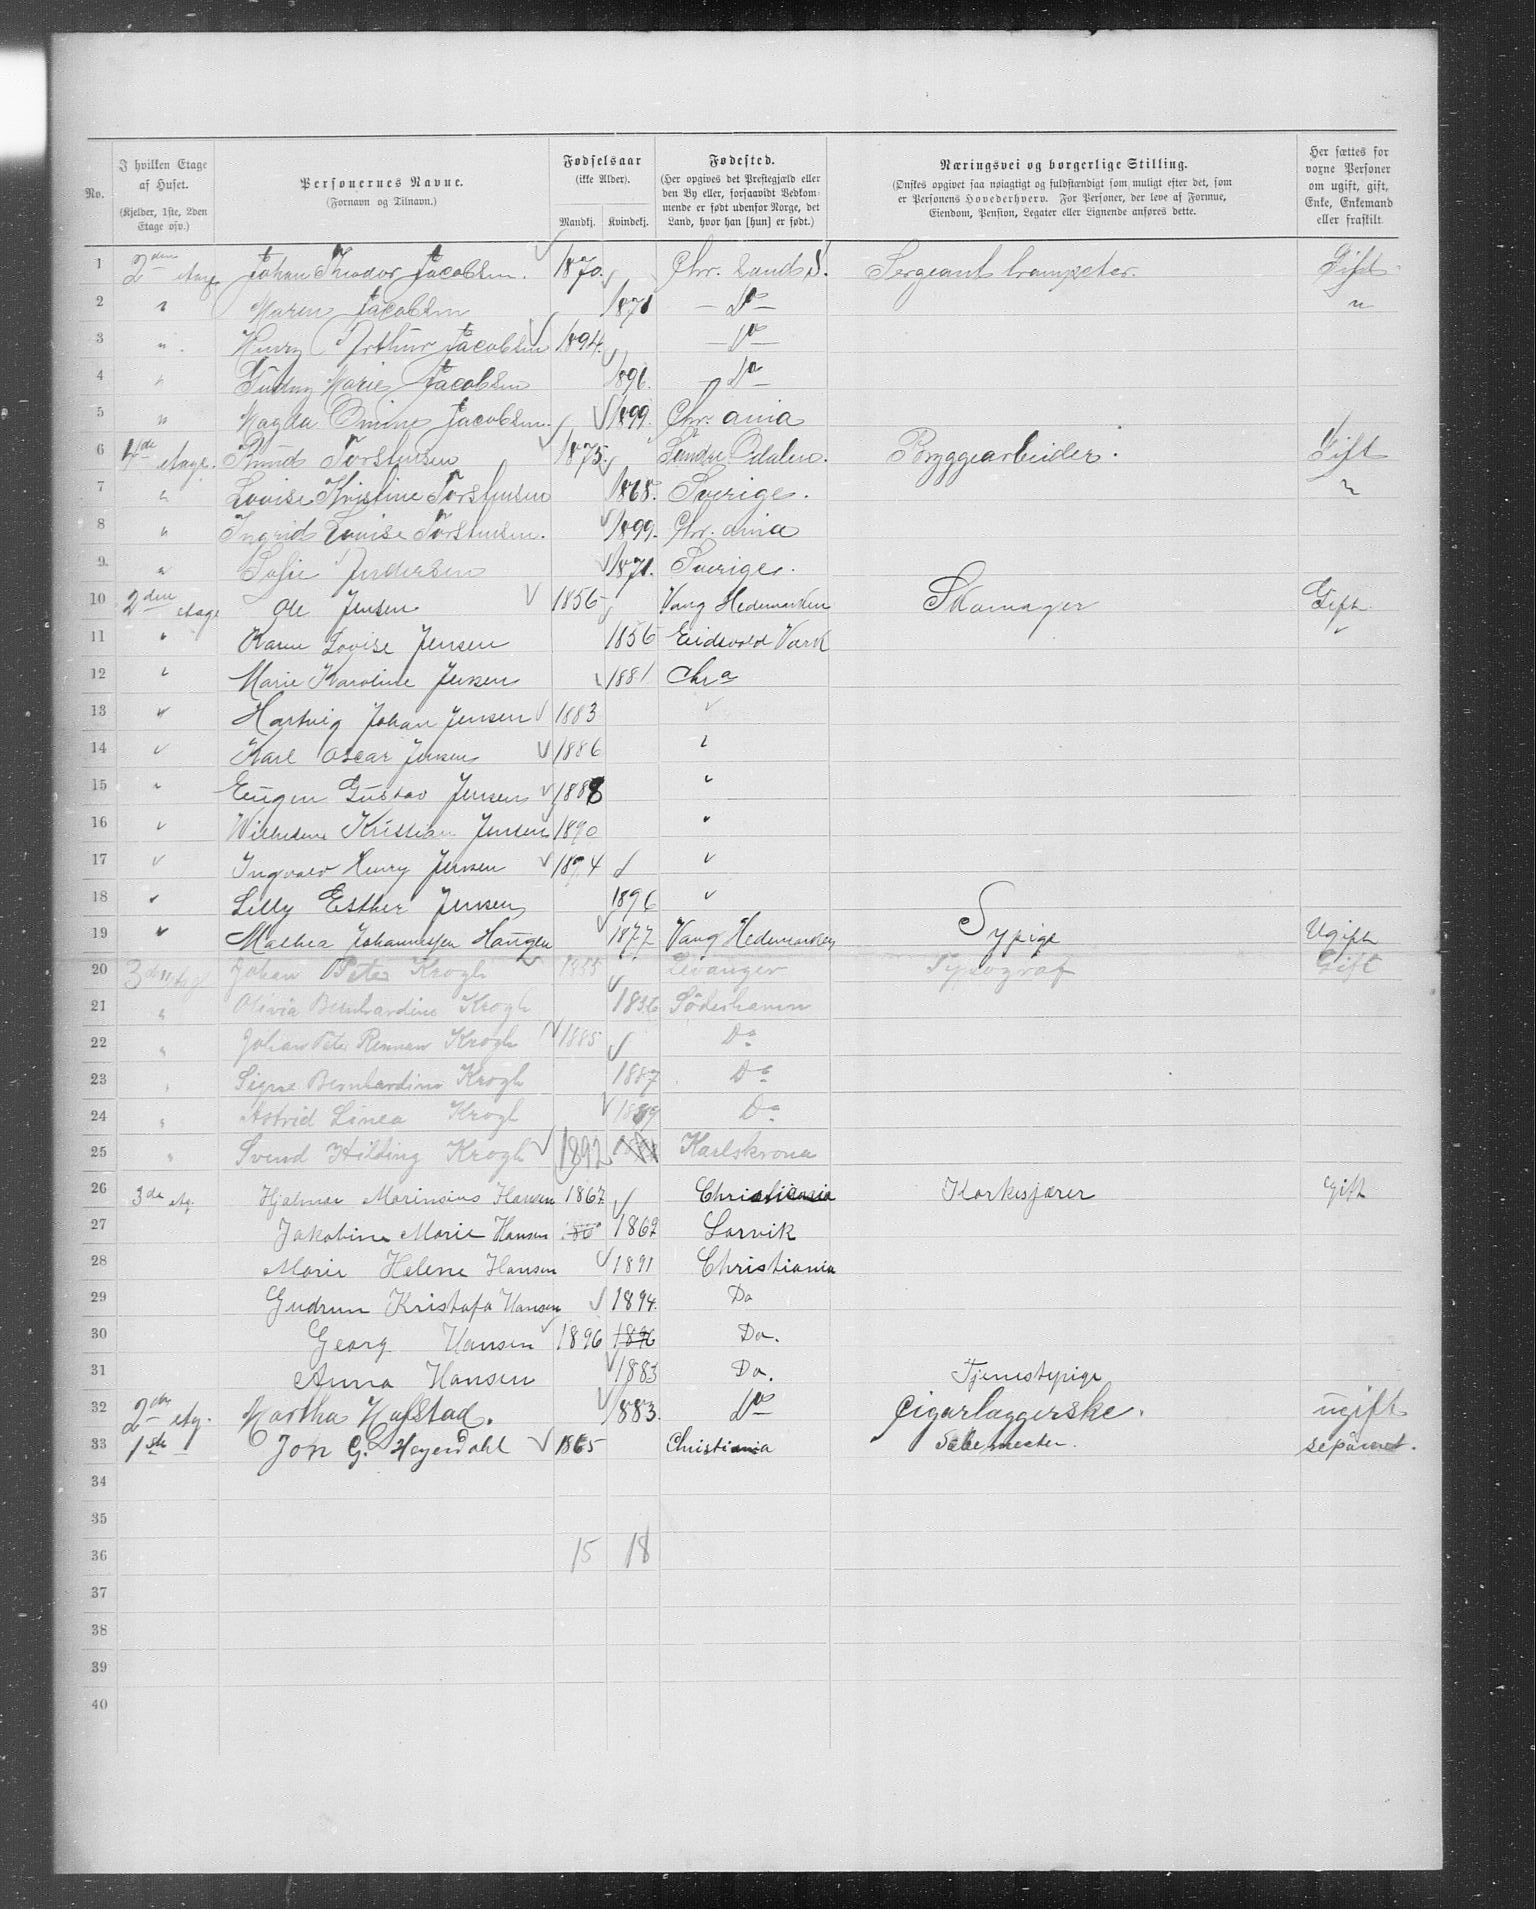 No. I hvilken Etage af Huset. (Kjelder, 1ste, 2den Etage osv.) Personernes Navne. (Fornavn og Tilnavn.) Fødselsaar (ikke Alder). Mandkj. Kvindekj. Fødested. (Her opgives det Prestegjæld eller den By eller, forsaavidt Vedkommende er født udenfor Norge, det Land, hvor han [hun] er født.) Næringsvei og borgerlige Stilling. (Ønskes opgivet saa nøiagtigt og fuldstændigt som muligt efter det, som er Personens Hovederhverv. For Personer, der leve af Formue, Eiendom, Pension, Legater eller Lignende anføres dette. Her sættes for voxne Personer om ugift, gift, Enke, Enkemand eller fraskilt.
1 2den etage Johan Theodor Jacobsen. 1870. Chr. Sand S. Sergeant trompeter. Gift
2 " Maren Jacobsen 1871 — Do — "
3 " Henry Arthur Jacobsen 1894. — Do —
4 " Gudny Marie Jacobsen 1896. — Do —
5 " Magda Omine Jacobsen. 1899. Chr. ania
6 4de etage. Knud Torstensen 1875. Søndre Odalen. Bryggearbeider. Gift
7 " Lovise Kristine Torstensen 1868. Sverige. "
8 " Ingrid Lovise Torstensen. 1899. Chr. ania
9. " Sofie Andersen 1871. Sverige.
10 2den etage Ole Jensen 1856 Vang Hedemarken Skomager Gift
11 " Karen Lovise Jensen 1856 Eidsvold Værk "
12 " Marie Karoline Jensen 1881 Chra
13 " Hartvig Johan Jensen 1883 "
14 " Karl Oscar Jensen 1886 "
15 " Eugen Gustav Jensen 1888 "
16 " Wilhelm Kristian Jensen 1890 "
17 " Ingvald Henry Jensen 1894 "
18 " Lilly Esther Jensen 1896 "
19 " Mathea Johannessen Haugen 1877 Vang Hedemarken Sypige Ugift
20 3die etage Johan Peter Krogh 1855 Levanger Typograf Gift
21 " Olivia Bernhardine Krogh 1856 Söderhamn
22 " Johan Peter Krogh 1885 Do
23 " Signe Bernhardine Krogh 1887 Do
24 " Astrid Linea Krogh 1889 Do
25 " Svend Hilding Krogh 1892 Karlskrona
26 3de etg. Hjalmar Marinsius Hansen 1867 Christiania Korkeskjærer Gift
27 Jakobine Marie Hansen 186 1862 Larvik
28 Marie Helene Hansen 1891 Christiania
29 Gudrun Kristofa Hansen 1894. Do
30 Georg Hansen 1896 1896 Do.
31 Anna Hansen 1883 Do. Tjenestepige
32 2den etg. Martha Hofstad. 1883. Do Cigarlæggerske. ugift
33 1ste Jon G. Heyerdahl 1865 Christiania Sæbemester. separeret.
34
35
36 15 18
37
38
39
40